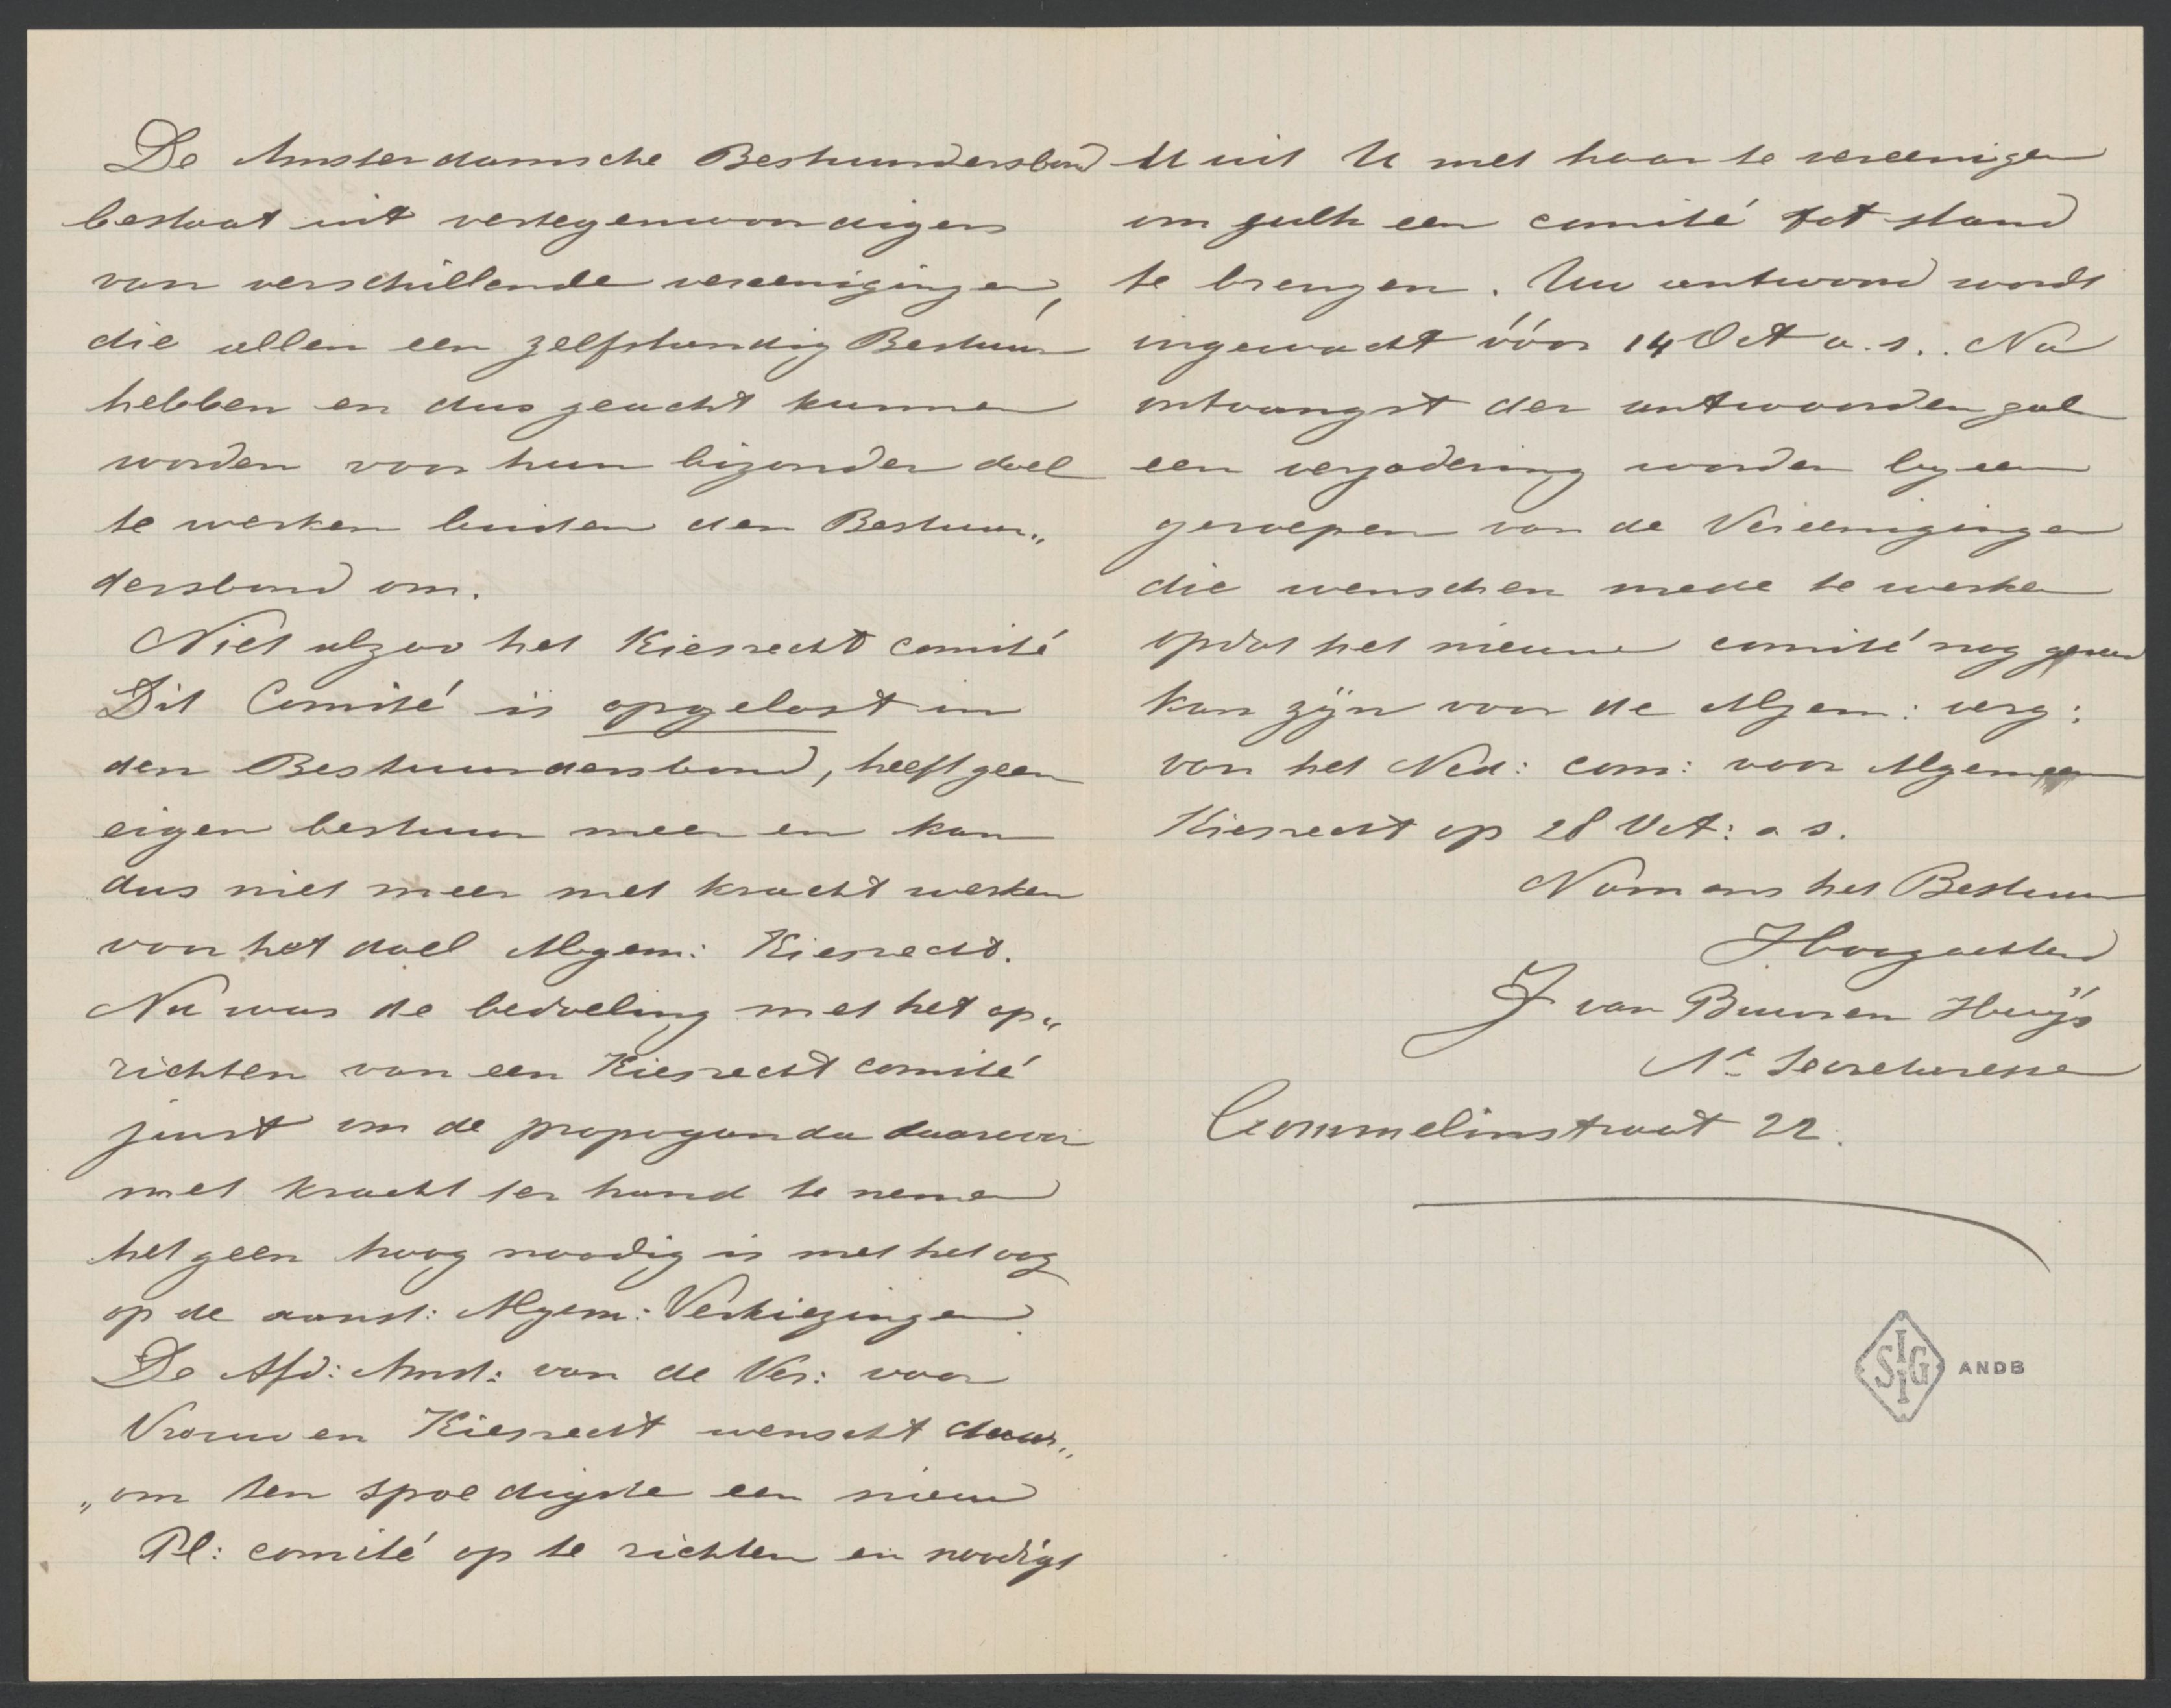 De Amsterdamsche Bestuurdersbond
bestaat uit vertegenwoordigers
van verschillende vereenigingen,
die allen een zelfstandig Bestuur
hebben en dus geacht kunnen
worden voor hun bizonder doel
te werken buiten den Bestuur„
dersbond om.
Niet alzoo het Kiesrecht comité
Dit Comité is opgelost in
den Bestuurdersbond, heeft geen
eigen bestuur meer en kan
dus niet meer met kracht werken
voor het doel Algem: Kiesrecht.
Nu was de bedoeling met het op„
richten van een Kiesrecht comité
juist om de propaganda daarvoor
met kracht ter hand te nemen
hetgeen hoog noodig is met het oog
op de aanst: Algem: Verkiezingen.
De Afd: Amst: van de Ver: voor
Vrouwen Kiesrecht wenscht daar„
„om ten spoedigste een nieuw
Pl: comité op te richten en noodigt
U uit U met haar te vereenigen
om zulk een comité tot stand
te brengen. Uw antwoord wordt
ingewacht vóór 14 Oct a.s.. Na
ontvangst der antwoorden zal
een vergadering worden bijeen
geroepen van de Vereenigingen
die wenschen mede te werken
opdat het nieuwe comité nog gereed
kan zijn voor de Algem: verg:
van het Ned: com: voor Algemeen
Kiesrecht op 28 Oct: a s.
Namens het Bestuur
Hoogachtend
J van Buuren Huijs
1e Secretaresse
Commelinstraat 22.
IISG ANDB